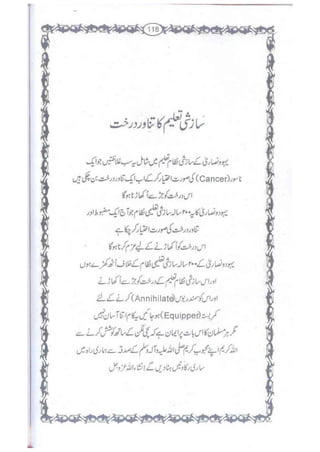 116
سازشی تعلیم کا تناور درخت
یہود و نصاریٰ کے سازشی نظام تعلیم میں شامل یہ سب غلاظتیں جو ایک
ناسور (Cancer) کی صورت اختیار کر کے اب ایک تناور درخت بن چکی ہیں
اس درخت کو جڑ سے اکھاڑنا ہوگا
یہود و نصاریٰ کا یہ ۲۰۰ سالہ سازشی تعلیمی نظام جو آج ایک مضبوط اور
تناور درخت کی صورت اختیار کر چکا ہے
اس درخت کو اکھاڑنے کے لیے عزم کرنا ہوگا
یہود و نصاریٰ کے ۲۰۰ سالہ سازشی تعلیمی نظام کے خلاف اُٹھ کھڑے ہوں
اور اس سازشی نظام تعلیم کے درخت کو جڑ سے اکھاڑنے
اور اس کو سمندر بُوس (Annihilate) کرنے کے لئے
کمر بستہ (Equipper) ہو جائیں یہ کام اتنا آسان نہیں
مگر ہر مسلمان کا اس بات پر ایمان ہے کہ سچی لگن کے ساتھ کوشش کرنے سے
اللہ کریم اپنے محبوب کریم صلی اللہ علیہ وآلہ وسلم کے صدقہ سے ہماری راہ میں
ساری رکاوٹیں ہٹا دیں گے انشاء اللہ عزوجل